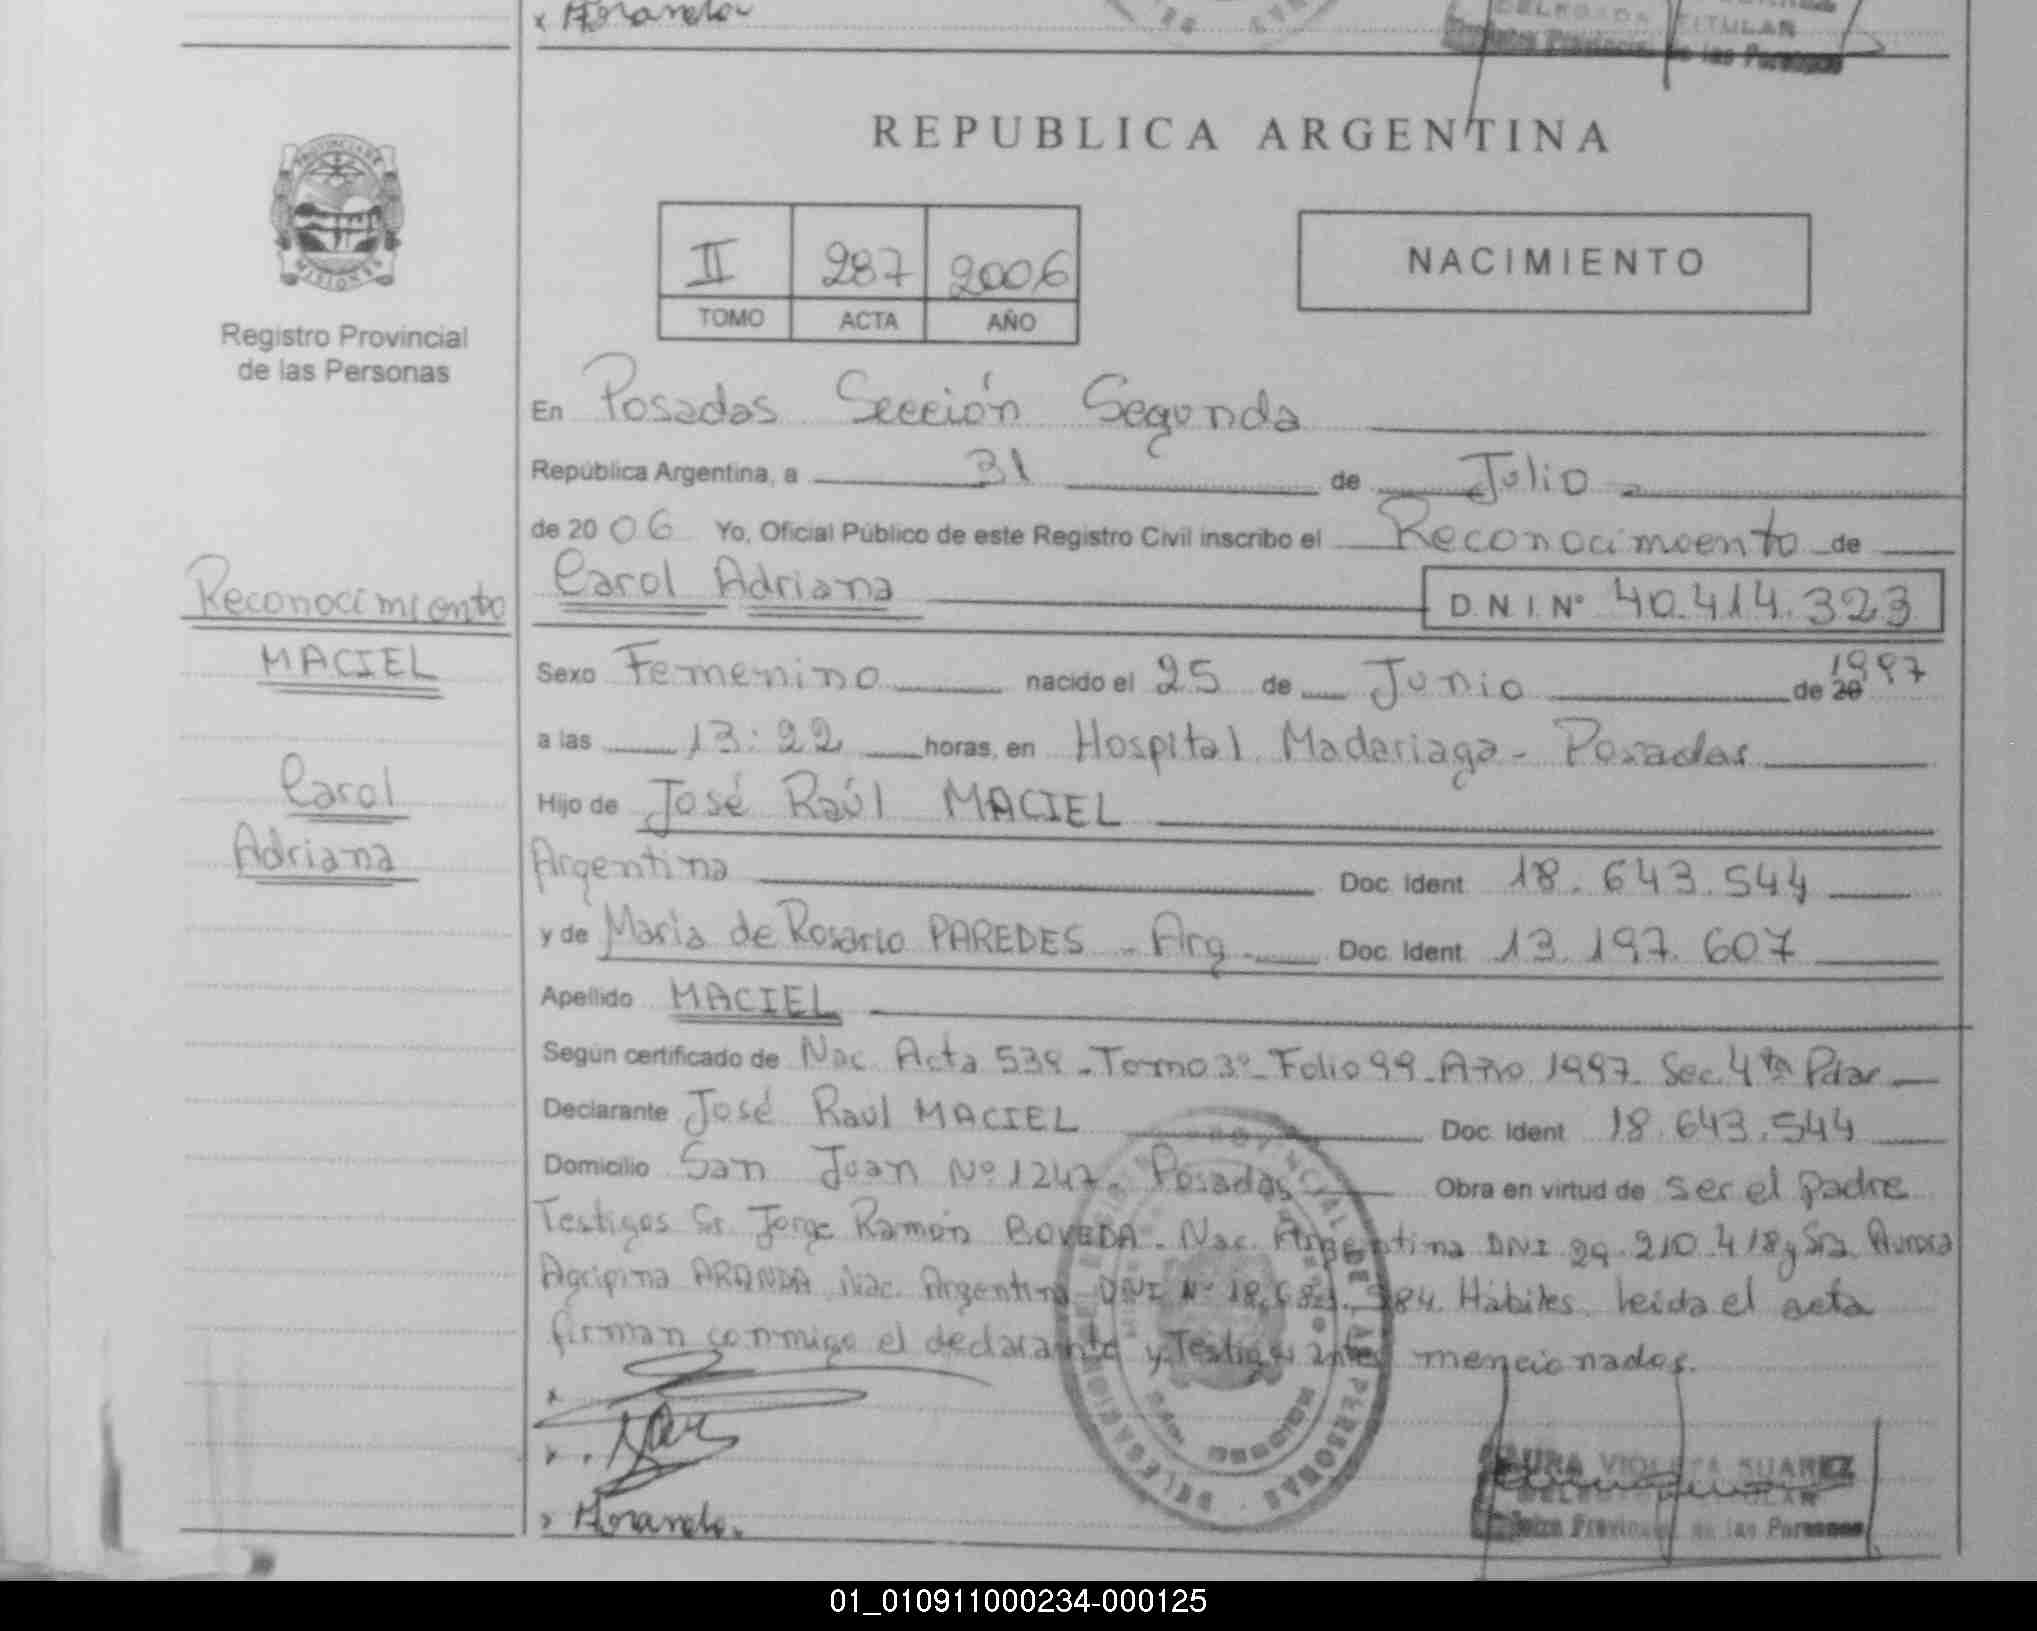 DELEGADA TITULAR
x Aranda
Registro Provincial de las Personas
REPUBLICA ARGENTINA
PROVINCIA DE
MISIONES
Registro Provincial
de las Personas
II 287 2006
TOMO ACTA AÑO
NACIMIENTO
En Posadas Sección Segunda
República Argentina, a 31 de Julio
de 2006 Yo, Oficial Público de este Registro Civil inscribo el Reconocimiento de
Carol Adriana D.N.I. Nº 40.414.323
Reconocimiento
MACIEL
Carol
Adriana
Sexo Femenino nacido el 25 de Junio de 20 1997
a las 13:22 horas, en Hospital Madariaga - Posadas
Hijo de José Raúl MACIEL
Argentina Doc. Ident 18.643.544
y de María de Rosario PAREDES - Arg - Doc. Ident 13.197.607
Apellido MACIEL
Según certificado de Nac. Acta 539 - Tomo 3º - Folio 99 - Año 1997 - Sec. 4ta Pdas
Declarante José Raul MACIEL Doc. Ident 18.643.544
Domicilio San Juan Nº 1247 - Posadas Obra en virtud de ser el padre
Testigos Sr. Jorge Ramón BOVEDA - Nac. Argentina DNI 29.210.418 y Sra. Aurora
Agripina ARANDA Nac. Argentina DNI Nº Habiles. Leida el acta
firman conmigo el declarante y Testigos antes mencionados.
x
x
x Aranda
REGISTRO PROVINCIAL DE LAS PERSONAS
LAURA VIOLETA SUAREZ
DELEGADA TITULAR
Registro Provincial de las Personas
01_010911000234-000125